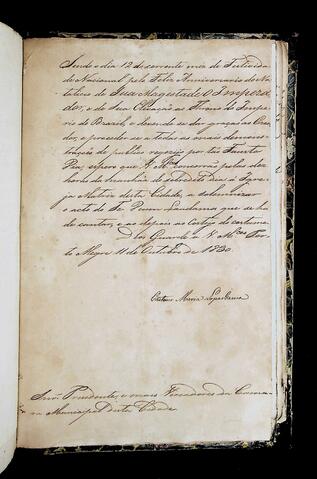 Sendo o dia 12 do corrente mez de Festivida-
de Nacional pelo Feliz Anniversario do Na-
talicio de Sua Magestade O Impera-
dor, e da Sua Elevação ao Throno do Impe-
rio do Brazil, e devendo se dar graças ao Crea-
dor, e proceder se a todas as mais demons-
trações de publico regozijo por tão Fausto
Dia, espero que V. S.as concorrão pelas dez
horas da manhã do sobredito dia á Igre-
ja Matriz desta Cidade, a solemnizar
o acto do Te Deum Laudamus que se ha
de cantar, e ao depois ao Cortejo do costume.
Deos Guarde a V. M.ces Por-
to Alegre 11 de Outubro de 1830.
Caetano Maria Lopes Gama
Snr.es Prezidente, e mais Vereadores da Cama-
ra Municipal desta Cidade